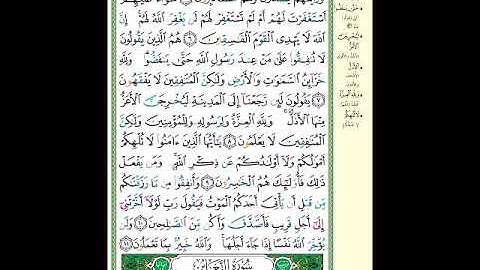 ٱسۡتَغۡفَرۡتَ لَهُمۡ أَمۡ لَمۡ تَسۡتَغۡفِرۡ لَهُمۡ لَن يَغۡفِرَ ٱللَّهُ لَهُمۡۚ إِنَّ
ٱللَّهَ لَا يَهۡدِي ٱلۡقَوۡمَ ٱلۡفَٰسِقِينَ ٦ هُمُ ٱلَّذِينَ يَقُولُونَ
لَا تُنفِقُواْ عَلَىٰ مَنۡ عِندَ رَسُولِ ٱللَّهِ حَتَّىٰ يَنفَضُّواْۗ وَلِلَّهِ
خَزَآئِنُ ٱلسَّمَٰوَٰتِ وَٱلۡأَرۡضِ وَلَٰكِنَّ ٱلۡمُنَٰفِقِينَ لَا يَفۡقَهُونَ
٧ يَقُولُونَ لَئِن رَّجَعۡنَآ إِلَى ٱلۡمَدِينَةِ لَيُخۡرِجَنَّ ٱلۡأَعَزُّ
مِنۡهَا ٱلۡأَذَلَّۚ وَلِلَّهِ ٱلۡعِزَّةُ وَلِرَسُولِهِۦ وَلِلۡمُؤۡمِنِينَ وَلَٰكِنَّ
ٱلۡمُنَٰفِقِينَ لَا يَعۡلَمُونَ ٨ يَٰٓأَيُّهَا ٱلَّذِينَ ءَامَنُواْ لَا تُلۡهِكُمۡ
أَمۡوَٰلُكُمۡ وَلَآ أَوۡلَٰدُكُمۡ عَن ذِكۡرِ ٱللَّهِۚ وَمَن يَفۡعَلۡ
ذَٰلِكَ فَأُوْلَٰٓئِكَ هُمُ ٱلۡخَٰسِرُونَ ٩ وَأَنفِقُواْ مِن مَّا رَزَقۡنَٰكُم
مِّن قَبۡلِ أَن يَأۡتِيَ أَحَدَكُمُ ٱلۡمَوۡتُ فَيَقُولَ رَبِّ لَوۡلَآ أَخَّرۡتَنِيٓ
إِلَىٰٓ أَجَلٖ قَرِيبٖ فَأَصَّدَّقَ وَأَكُن مِّنَ ٱلصَّٰلِحِينَ ١٠ وَلَن
يُؤَخِّرَ ٱللَّهُ نَفۡسًا إِذَا جَآءَ أَجَلُهَاۚ وَٱللَّهُ خَبِيرُۢ بِمَا تَعۡمَلُونَ ١١
سُورَةُ التَّغَابُنِ